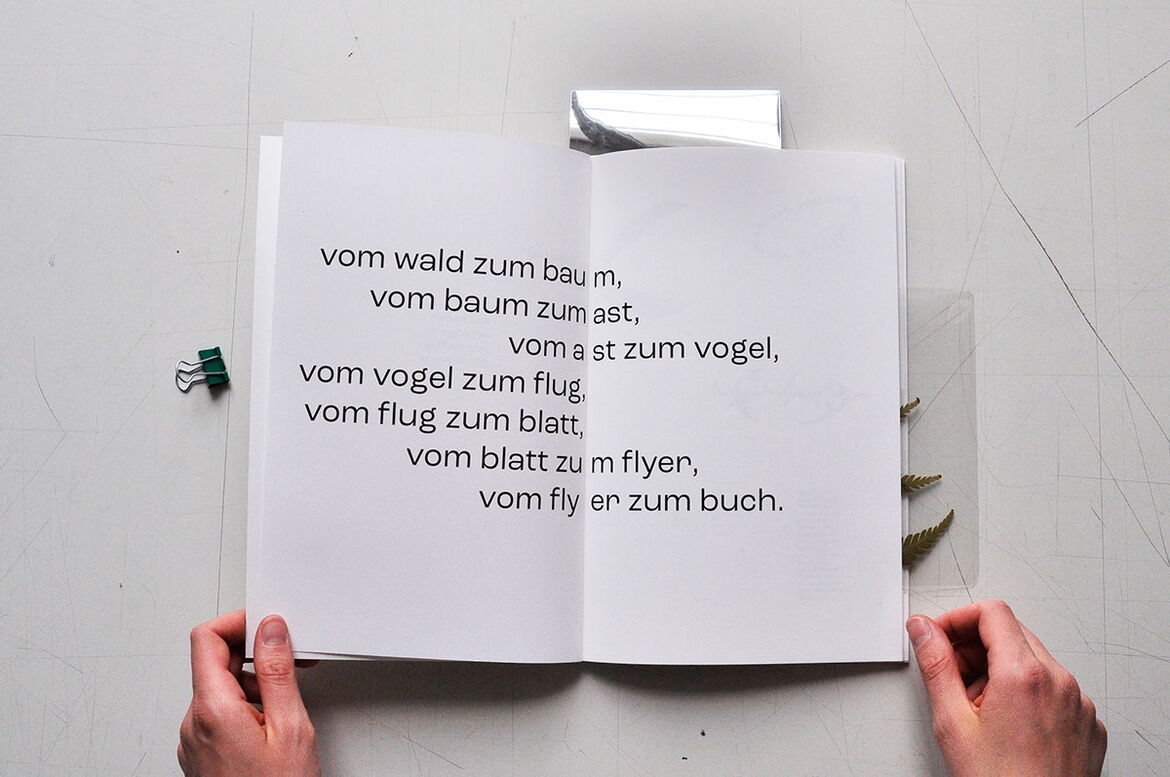 vom wald zum baum,
vom baum zum ast,
vom ast zum vogel,
vom vogel zum flug,
vom flug zum blatt,
vom blatt zum flyer,
vom flyer zum buch.